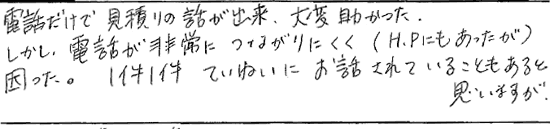 電話だけで見積りの話が出来、大変助かった。
しかし、電話が非常につながりにくく(H.Pにもあったが)
困った。1件1件ていねいにお話されていることもあると
思いますが。